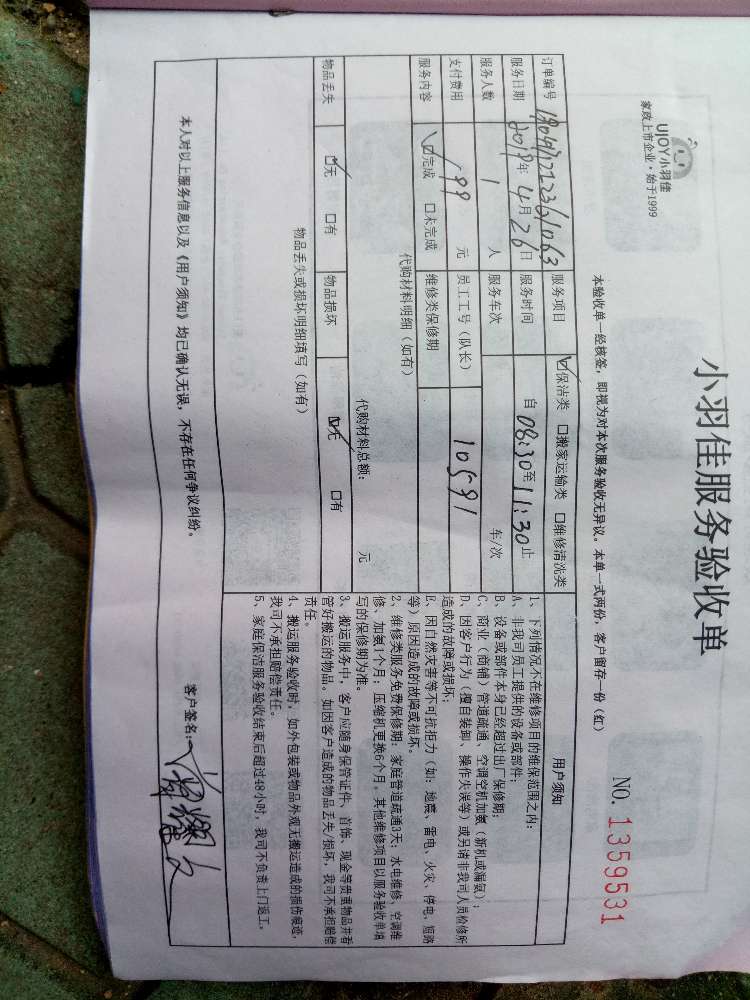 UJOY小羽佳
家政上市企业·始于1999
小羽佳服务验收单
NO. 1359531
本验收单一经核签，即视为对本次服务验收无异议。本单一式两份，客户留存一份（红）
订单编号 服务项目 ☑保洁类 □搬家运输类 □维修清洗类
服务日期 2019年 4月 26日 服务时间 自 08:30 至 11:30 止
服务人数 1 人 服务车次 车/次
支付费用 99 元 员工工号（队长） 10591
服务内容 ☑完成 □未完成 维修类保修期
代购材料明细（如有）
代购材料总额： 元
物品丢失 ☑无 □有 物品损坏 ☑无 □有
物品丢失或损坏明细填写（如有）
用户须知
1、下列情况不在维修项目的维保范围之内：
A、非我司员工提供的设备或部件；
B、设备或部件本身已经超过出厂保修期；
C、商业（商铺）管道疏通、空调空机加氨（新机或漏氨）；
D、因客户行为（擅自装卸、操作失误等）或另请非我司人员检修所
造成的故障或损坏；
E、因自然灾害等不可抗拒力（如：地震、雷电、火灾、停电、短路
等）原因造成的故障或损坏。
2、维修类服务免费保修期：家庭管道疏通3天；水电维修、空调维
修、加氨1个月；压缩机更换6个月，其他维修项目以服务验收单填
写的保修期为准。
3、搬运服务中，客户应随身保管证件、首饰、现金等贵重物品并看
管好搬运的物品。如因客户造成的物品丢失/损坏，我司不承担赔偿
责任。
4、搬运服务验收时，如外包装或物品外观无搬运造成的损伤痕迹，
我司不承担赔偿责任。
5、家庭保洁服务验收结束后超过48小时，我司不负责上门返工。
本人对以上服务信息以及《用户须知》均已确认无误，不存在任何争议纠纷。
客户签名：